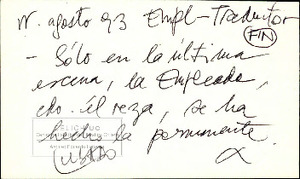 N. agosto 93 Empl-Traductor
FIN
- Sólo en la última
escena, la Empleada,
cdo. él reza, se ha
hecho la permanente.
USADO